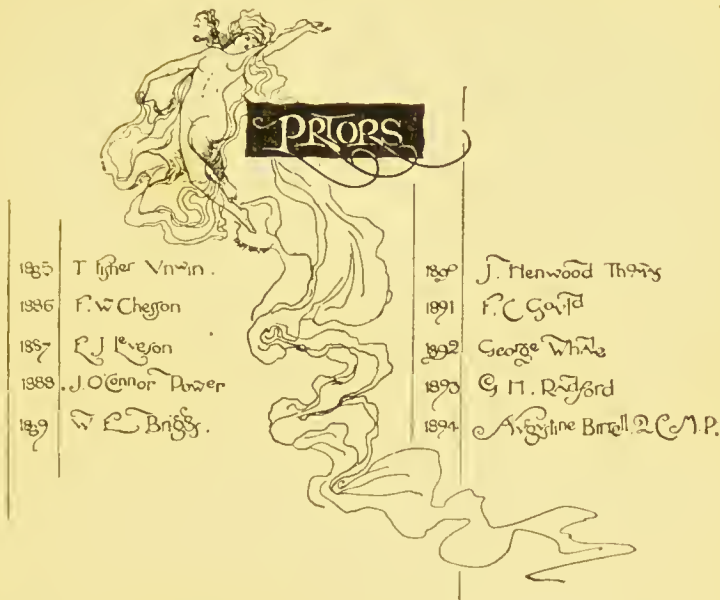 PRIORS
1885 T Fisher Vnwin.
1886 F. W Chesson
1887 E J Leveson
1888 J. O'Connor Power
1889 W E Briggs.
1890 J. Henwood Thomas
1891 F. C Gould
1892 George Whale
1893 G H. Radford
1894 Avgvstine Birrell. Q C M.P.